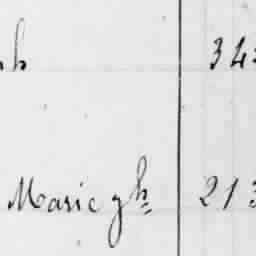 34
Marie gh 213